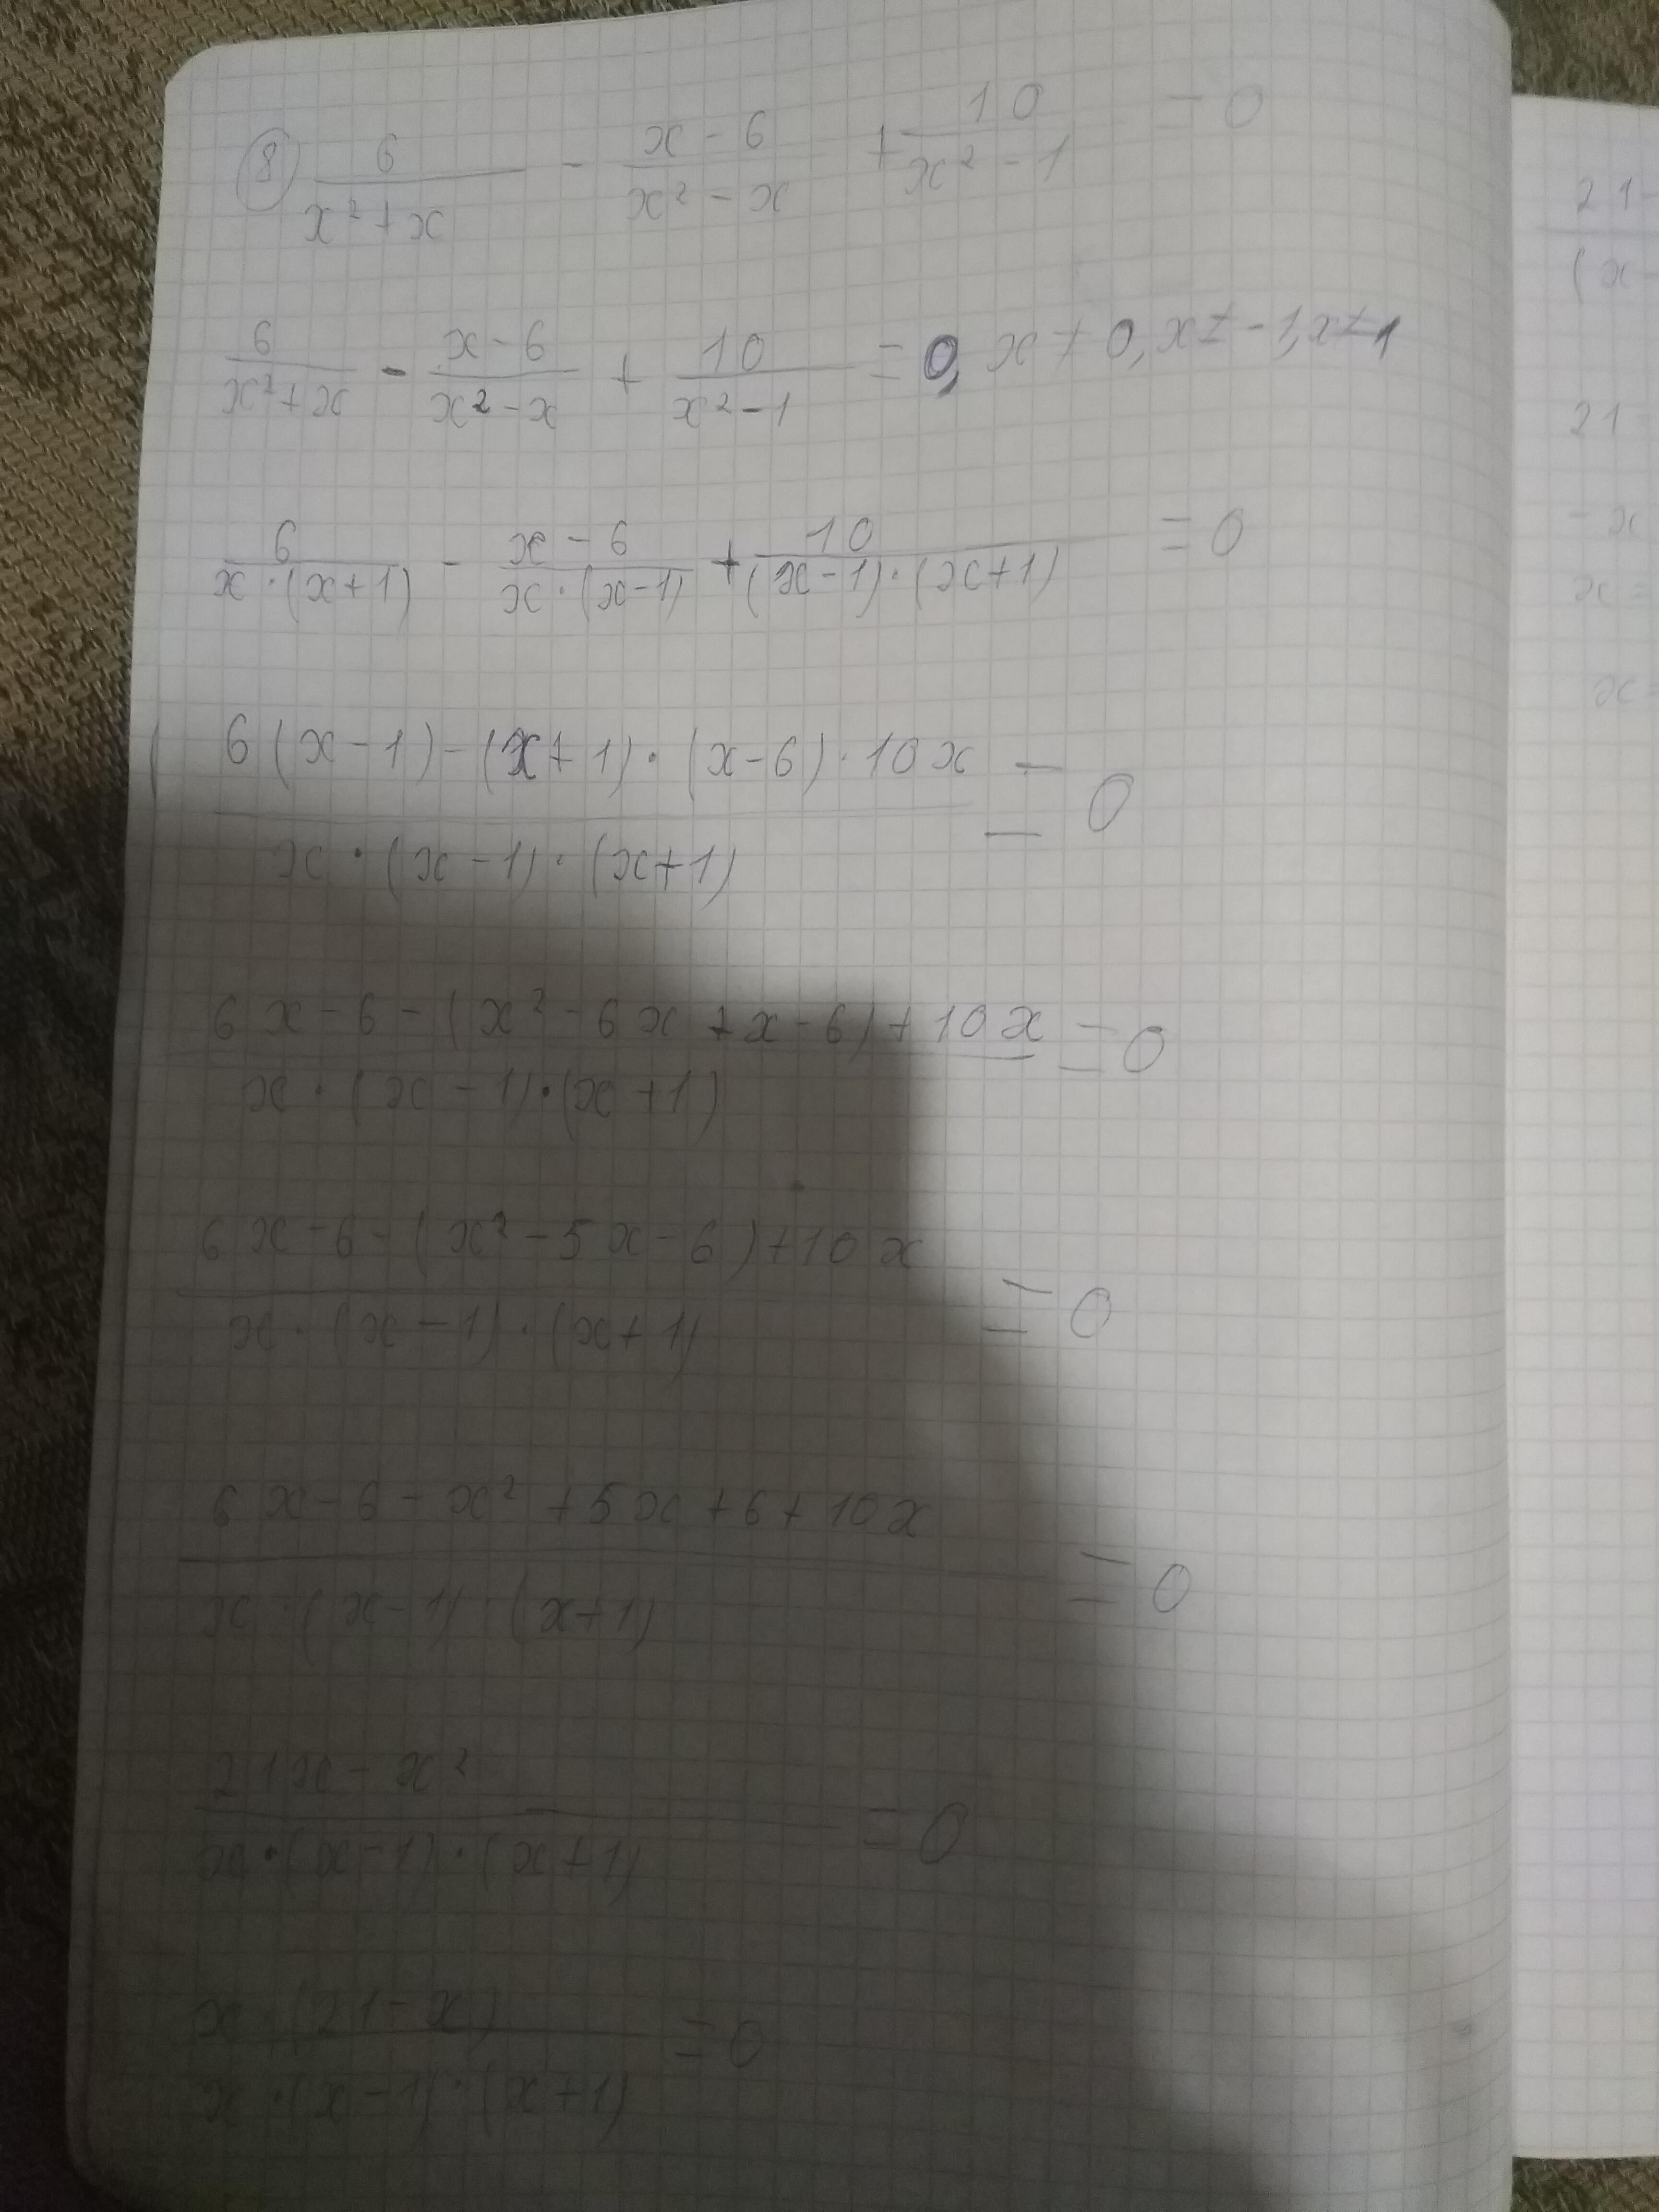 ⑧ 6/(x²+x) - (x-6)/(x²-x) + 10/(x²-1) = 0
6/(x²+x) - (x-6)/(x²-x) + 10/(x²-1) = 0, x ≠ 0, x ≠ -1, x ≠ 1
6/(x·(x+1)) - (x-6)/(x·(x-1)) + 10/((x-1)·(x+1)) = 0
(6(x-1)-(x+1)·(x-6)·10x)/(x·(x-1)·(x+1)) = 0
(6x-6-(x²-6x+x-6)+10x)/(x·(x-1)·(x+1)) = 0
(6x-6-(x²-5x-6)+10x)/(x·(x-1)·(x+1)) = 0
(6x-6-x²+5x+6+10x)/(x·(x-1)·(x+1)) = 0
(21x-x²)/(x·(x-1)·(x+1)) = 0
(x·(21-x))/(x·(x-1)·(x+1)) = 0
21-
(x-
21
-x
x=
x=